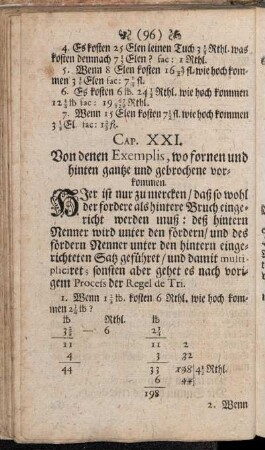 (96)
4. Es kosten 25 Elen leinen Tuch 3 3/4 Rthl. was
kosten demnach 7 1/2 Elen? fac: 1 Rthl.
5. Wenn 8 Elen kosten fl. wie hoch kom-
men 3 Elen fac: fl.
6. Es kosten 6 lb. Rthl. wie hoch kommen
12 lb fac: Rthl.
7. Wenn 15 Elen kosten fl. wie hoch kommen
El. fac: fl.
CAP. XXI.
Von denen Exemplis, wo fornen und
hinten gantze und gebrochene vor-
kommen.
HIer ist nur zu mercken/ daß so wohl
der fordere als hintere Bruch einge-
richt werden muß: deß hintern
Nenner wird unter den fördern/ und des
fördern Nenner unter den hintern einge-
richteten Satz geführet/ und damit multi-
pliciret; sonsten aber gehet es nach vori-
gem Process der Regel de Tri.
1. Wenn lb. kosten 6 Rthl. wie hoch kom-
men lb?
lb Rthl. lb
— 6 2 3/4
11 11 2
4 3 32
44 33 198 Rthl.
6 44
198
2. Wenn